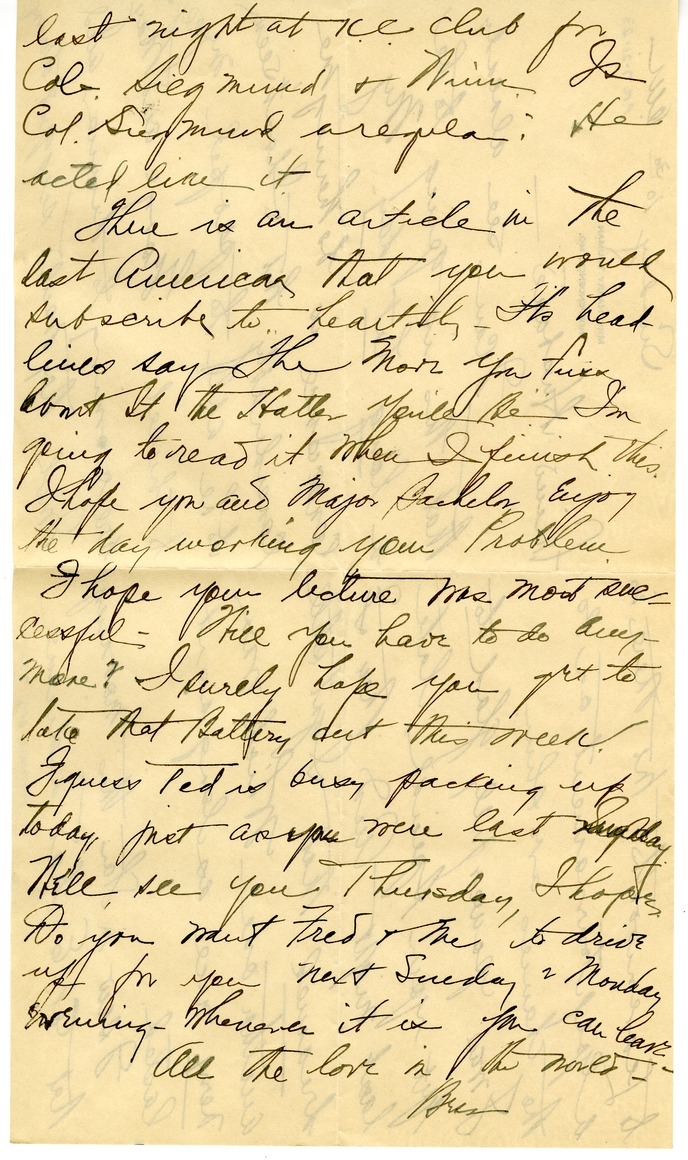 last night at K.C. Club for
Col. Siegmund & Winn. Is
Col. Siegmund a regular? He
acted like it
There is an article in the
last American that you would
subscribe to heartily - Its head-
lines say The More You Fuss
About It the Hatter You'll Be. I'm
going to read it when I finish this.
I hope you and Major Bachelor Enjoy
the day working your Problem
I hope your lecture was most suc-
cessful - Will you have to do any-
more? I surely hope you get to
take that Battery out this week.
I guess Ted is busy packing up
today, just as you were last Sunday.
Will see you Thursday, I hope.
Do you want Fred & Me to drive
up for you next Sunday or Monday
evening - Whenever it is you can leave -
All the love in the world -
Bess